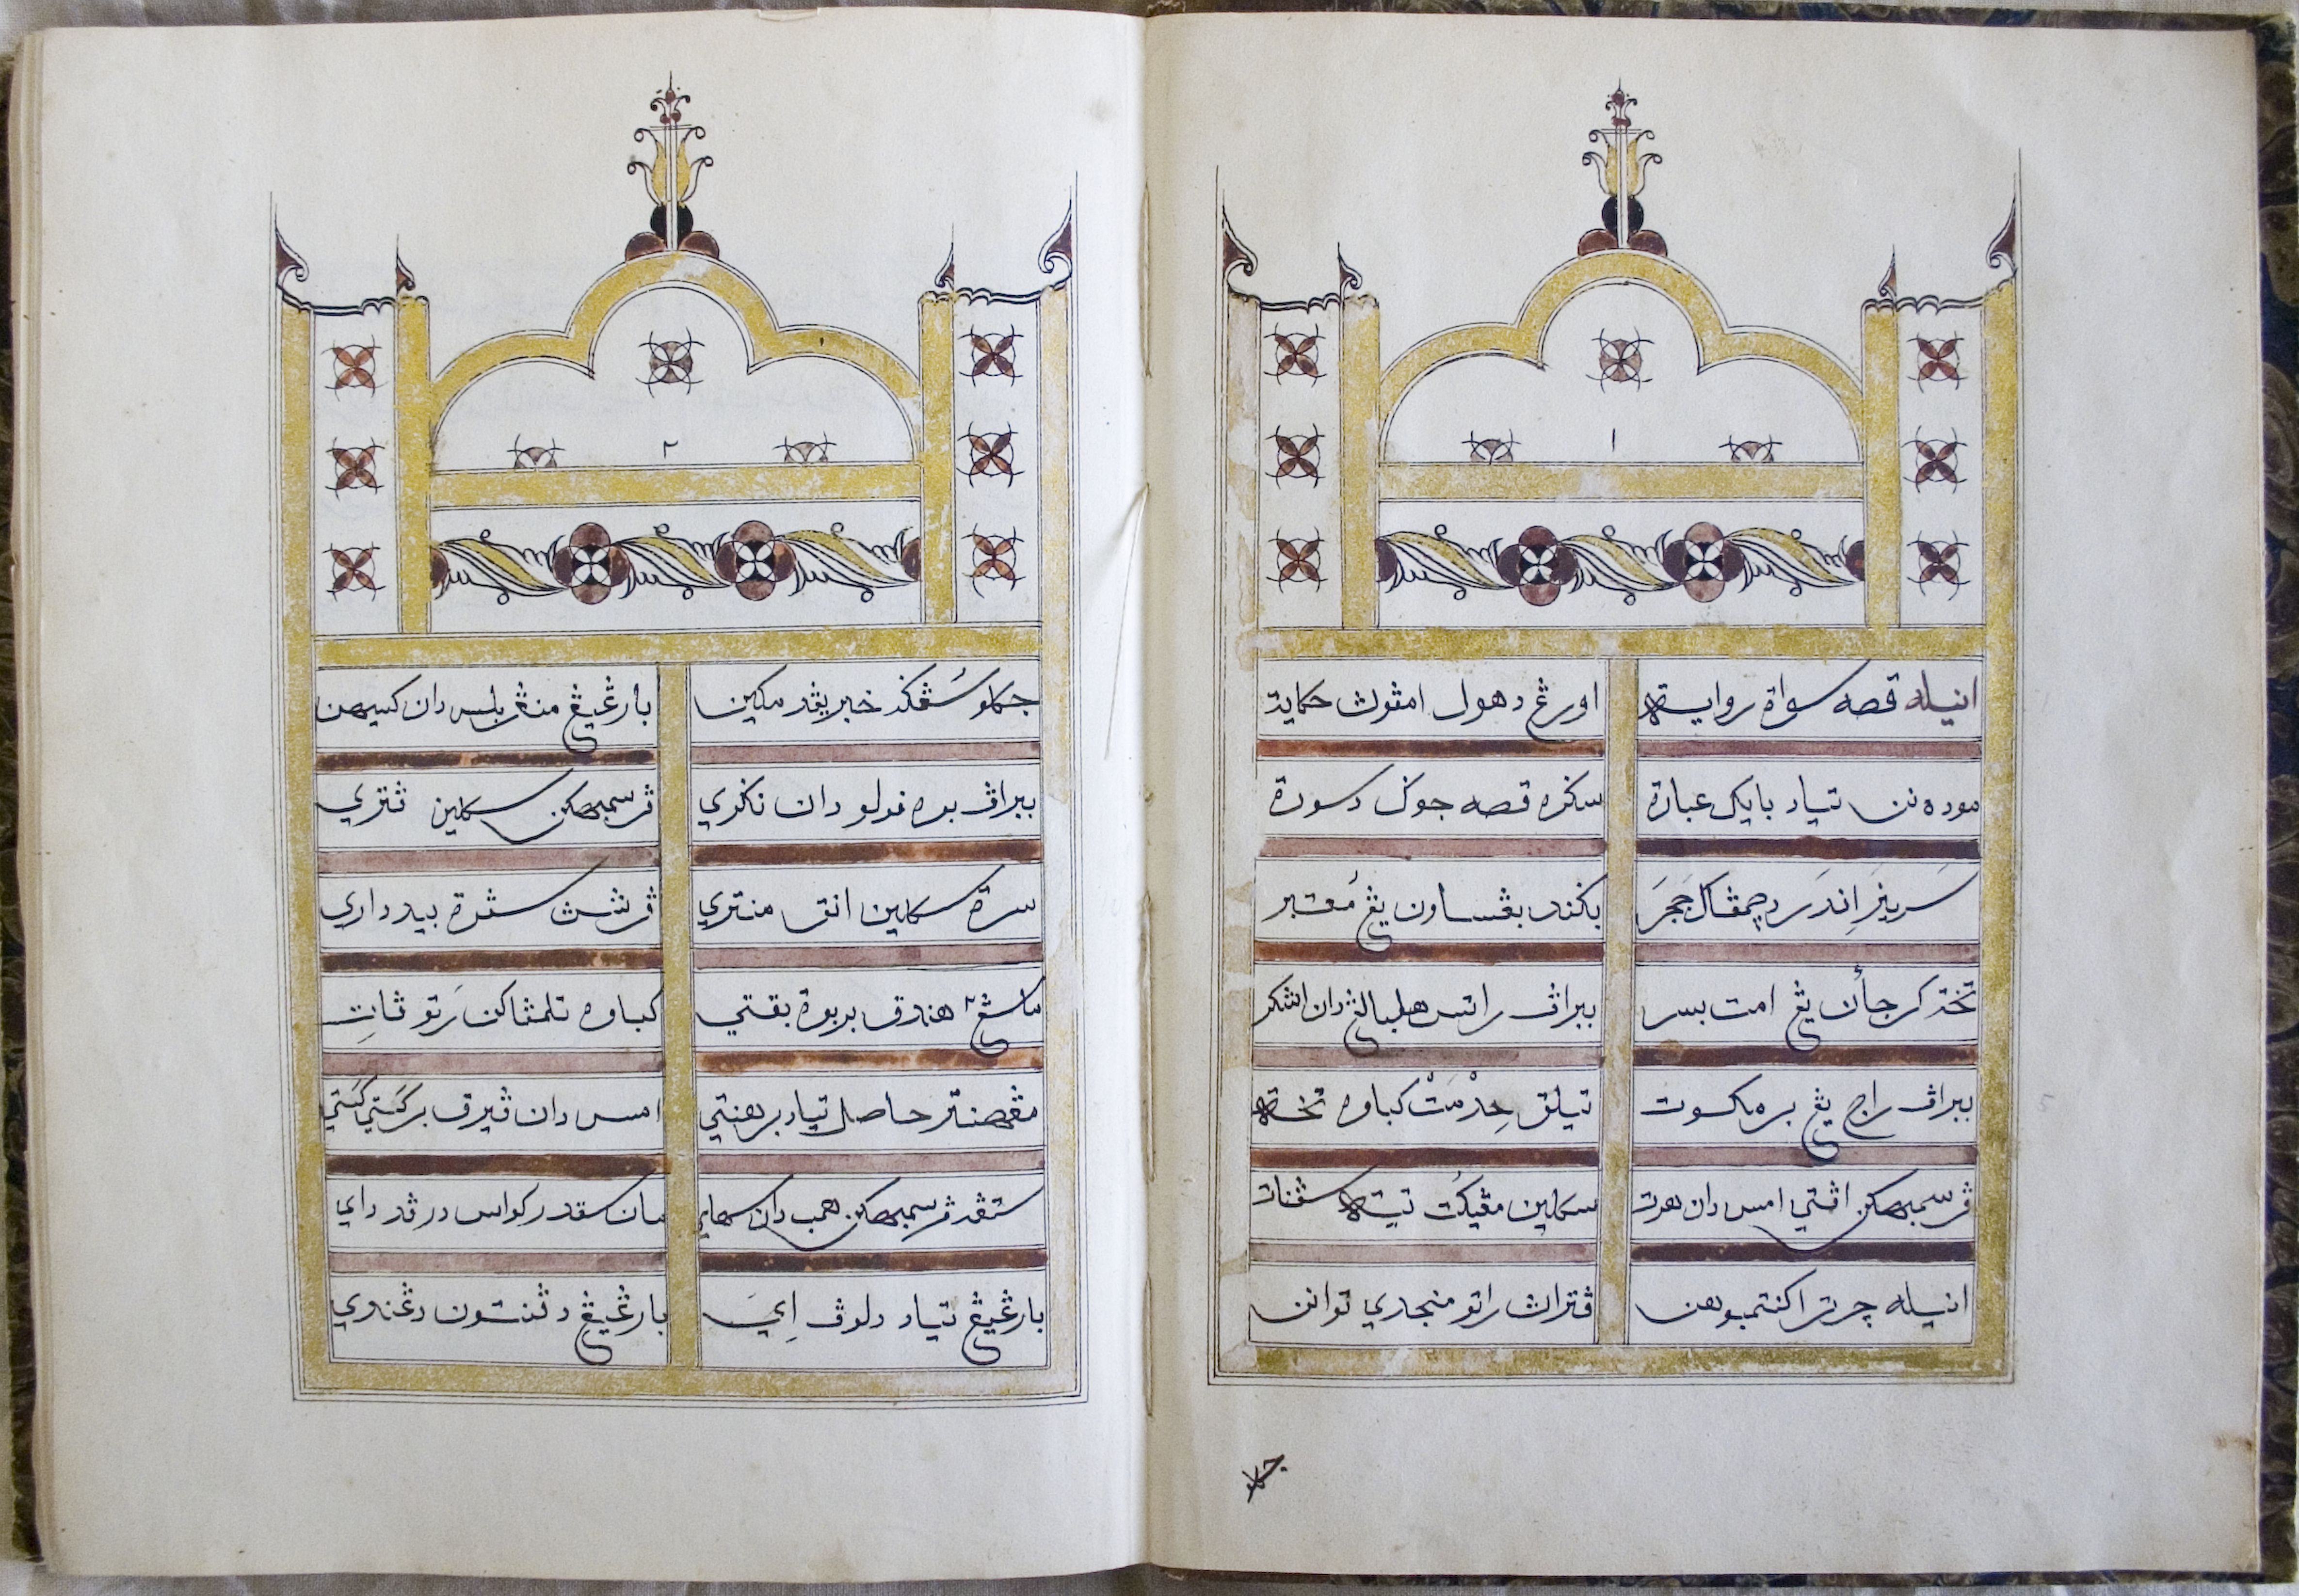 ١
انيله قصه سواة روايتڽ
اورڠ دهول امڤوث حكاية
موده نن تياد بايك عبارة
سكره قصه جوݢ دسورة
سريڠݢ اندر دچمڤاك ججر
بݢند بڤساون يڠ معتبر
تختـ كرجأن يڠ امت بسر
ببراڤ راتس هلبالڠ دان لشكر
ببراڤ راج يڠ بره مكسوت
تيلق حذمت كباوه تختڽ
ڤرسمبهكن اڤتي امس دان هرت
سكلين مڠيكت تيتهڽ سڤنات
انيله چرترا كنتمبوهن
ڤتراث راتو منجاري توانن
جك
٢
جكلو سڠݢه خبر يڠد مكين
بارڠيڠ منڠر بلس دان كسيهن
ببراڤ بوه ڤولو دان نݢري
ڤرسمبهكن سكلين ڤتري
سرة سكلين انق منتري
ڤرثث سترة بيدداري
ماسڠ٢ هندق بربوة بقتي
كباوه تلمڤاكن رتو ڤات
مڠهنتر حاصل تياد برهنتي
امس دان ڤيرق بركتي كتي
ستڠه ڤرسمبهكن همب دان سهاي
مان سقدر كواس درڤد داي
بارڠيڠ تياد دلوڤ اي
بارڠيڠ دڤنتون دڠندي